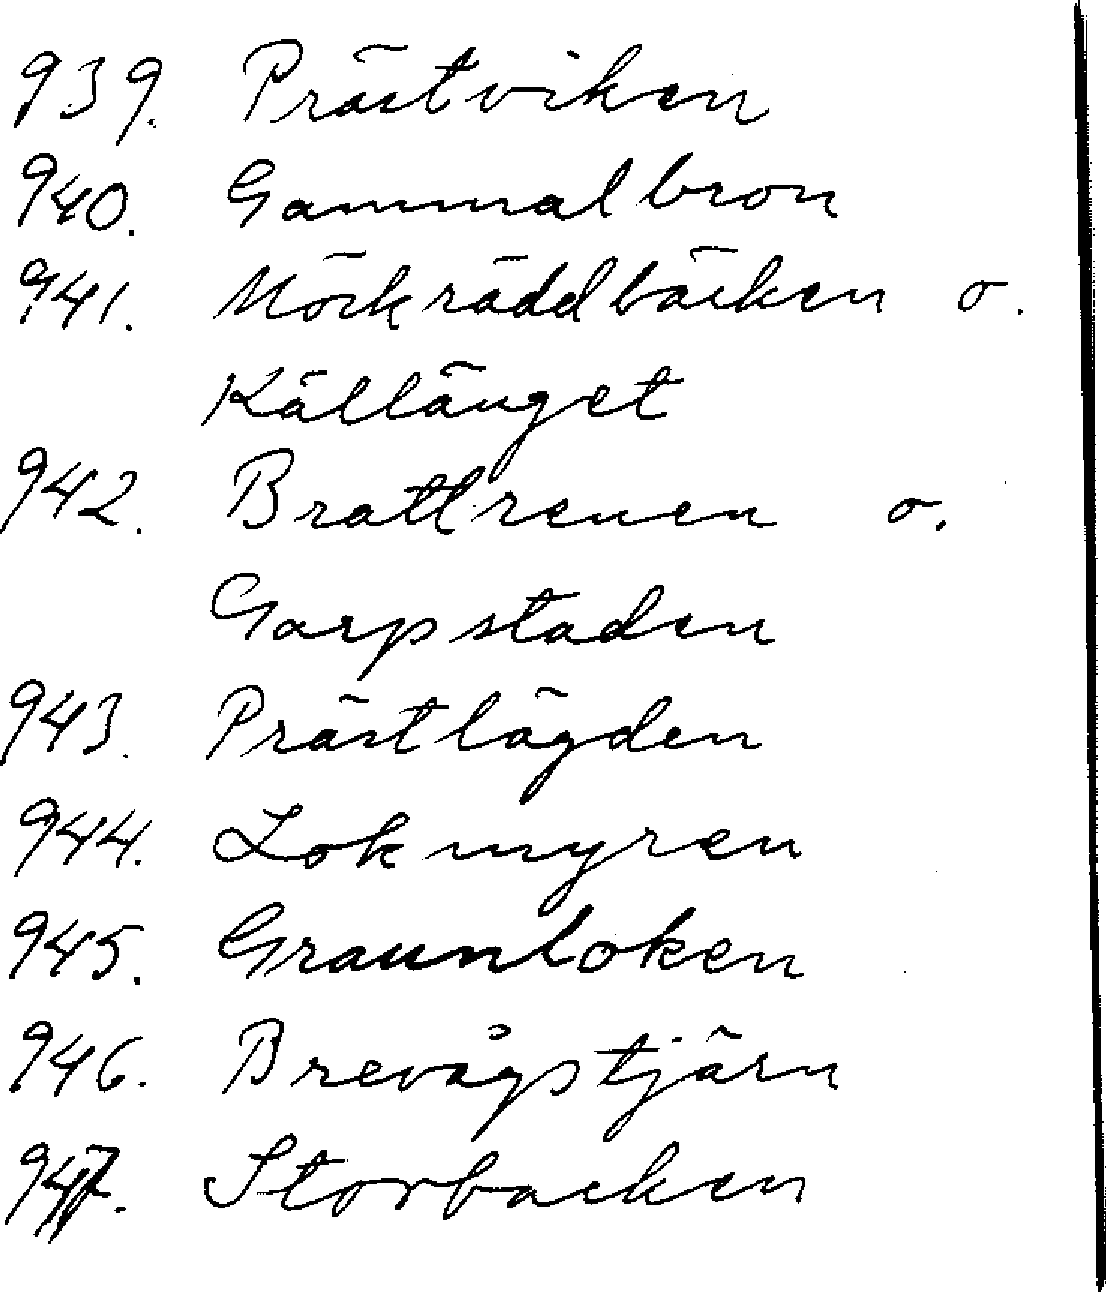 939. Prästviken
940. Gammalbron
941. Mörkräddbäcken o.
Källänget
942. Brattrenen o.
Garpstaden
943. Prästlägden
944. Lokmyren
945. Graunloken
946. Brevågstjärn
947. Storbacken